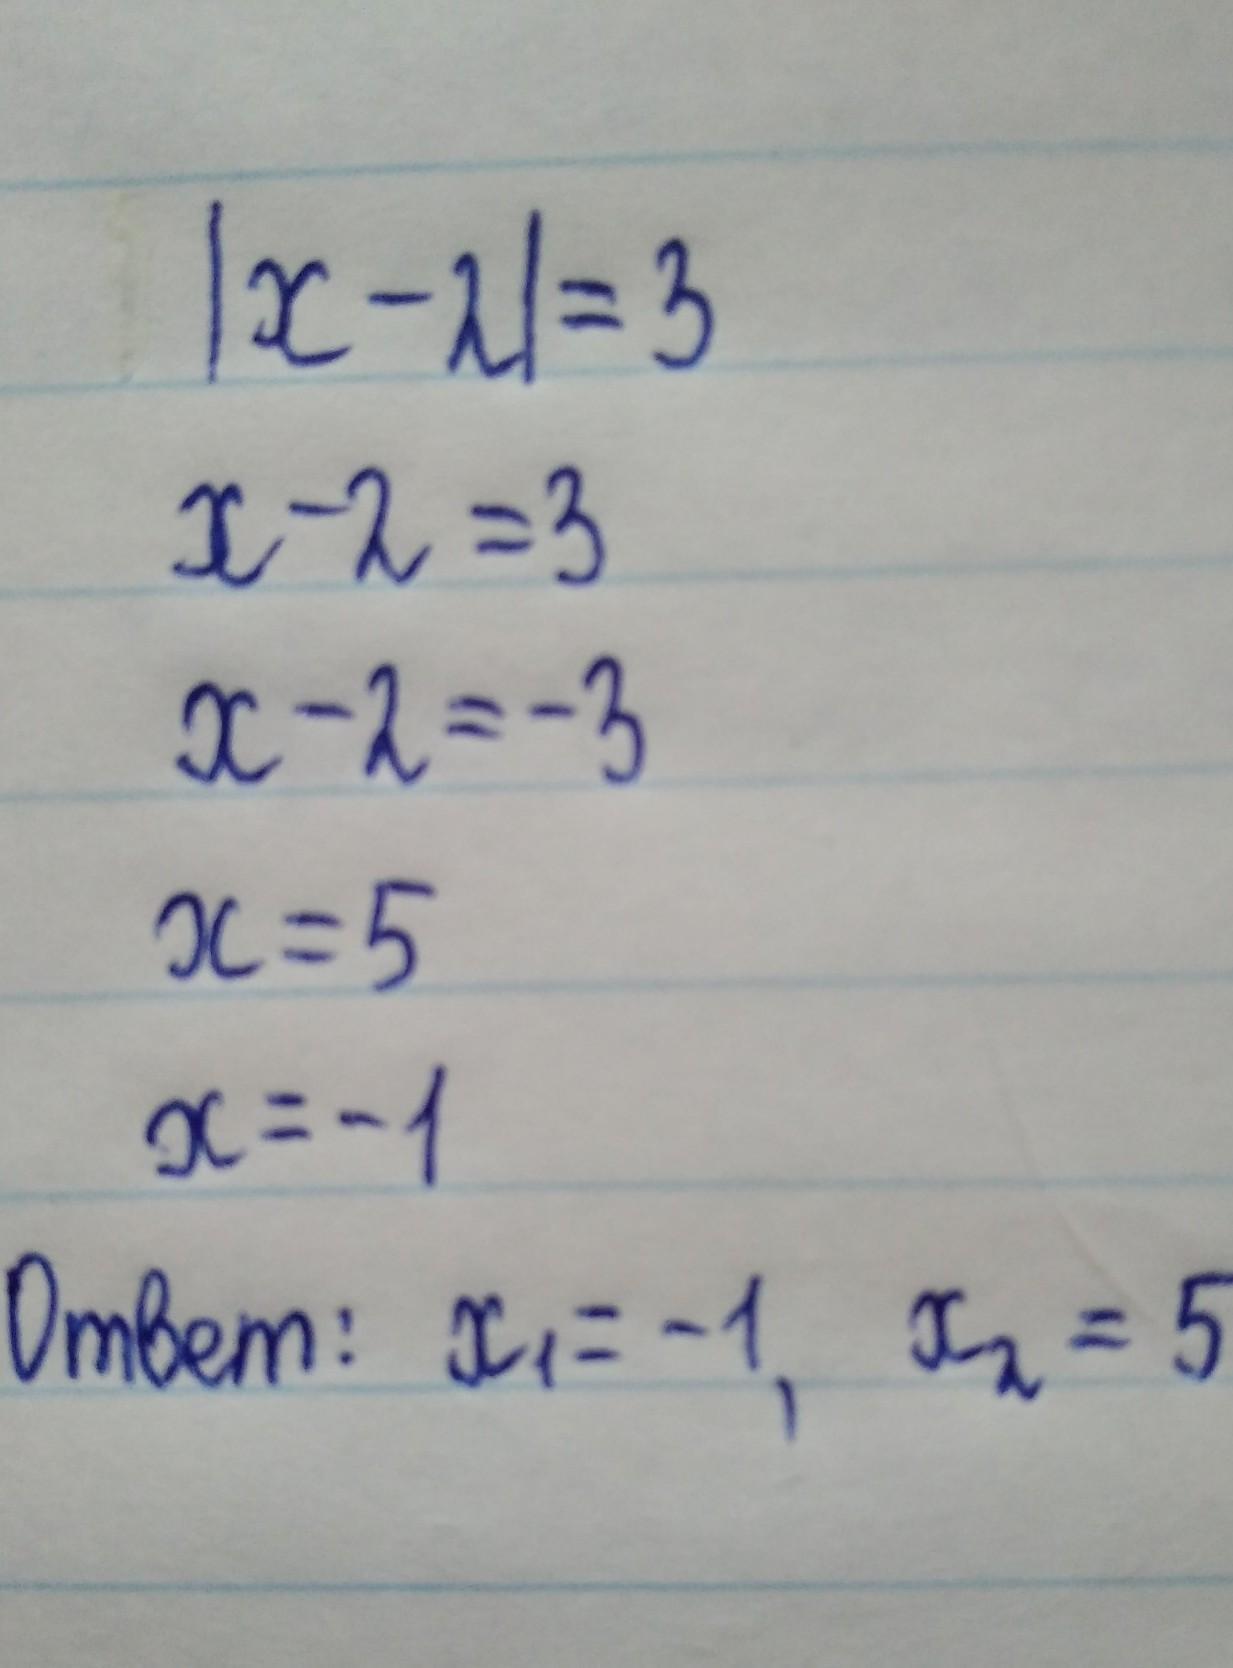 |x - 2| = 3
x - 2 = 3
x - 2 = -3
x = 5
x = -1
Ответ: x₁ = -1, x₂ = 5